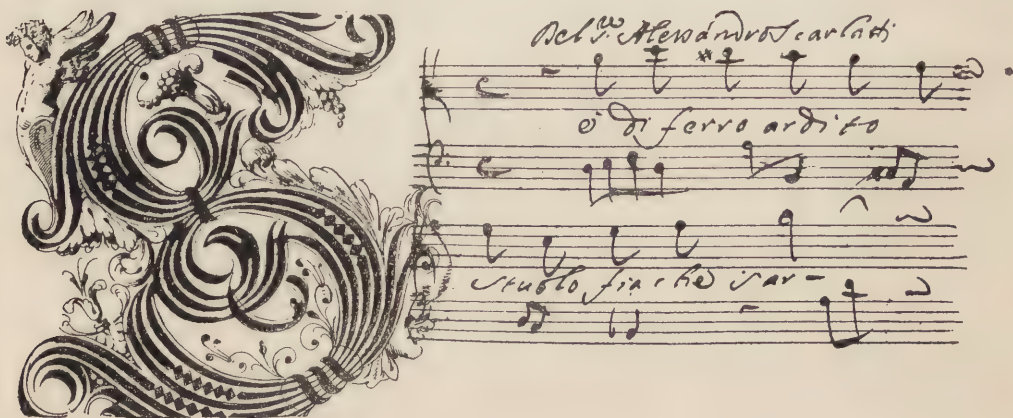 Del Sr. Alessandro Scarlatti
S
è di ferro ardito
stuolo fia che s'ar-